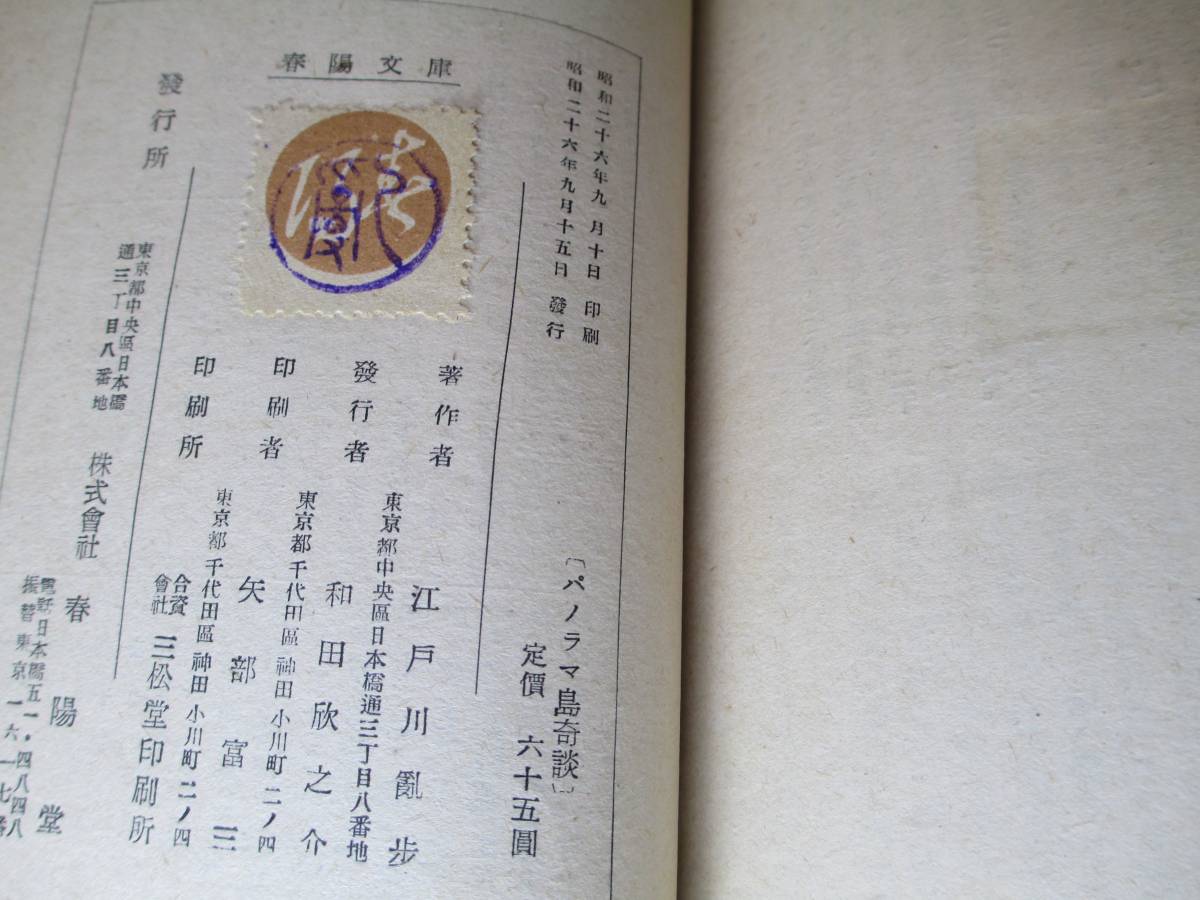 春陽文庫
昭和二十六年九月十日 印刷
昭和二十六年九月十五日 發行
〔パノラマ島奇談〕
定價 六十五圓
著作者 江戸川亂步
東京都中央區日本橋通三丁目八番地
發行者 和田欣之介
東京都千代田區神田小川町二ノ四
印刷者 矢部富三
東京都千代田區神田小川町二ノ四
印刷所 合資會社 三松堂印刷所
發行所
東京都中央區日本橋
通三丁目八番地
株式會社 春陽堂
電話日本橋五一・四八四八
振替東京一六一七番